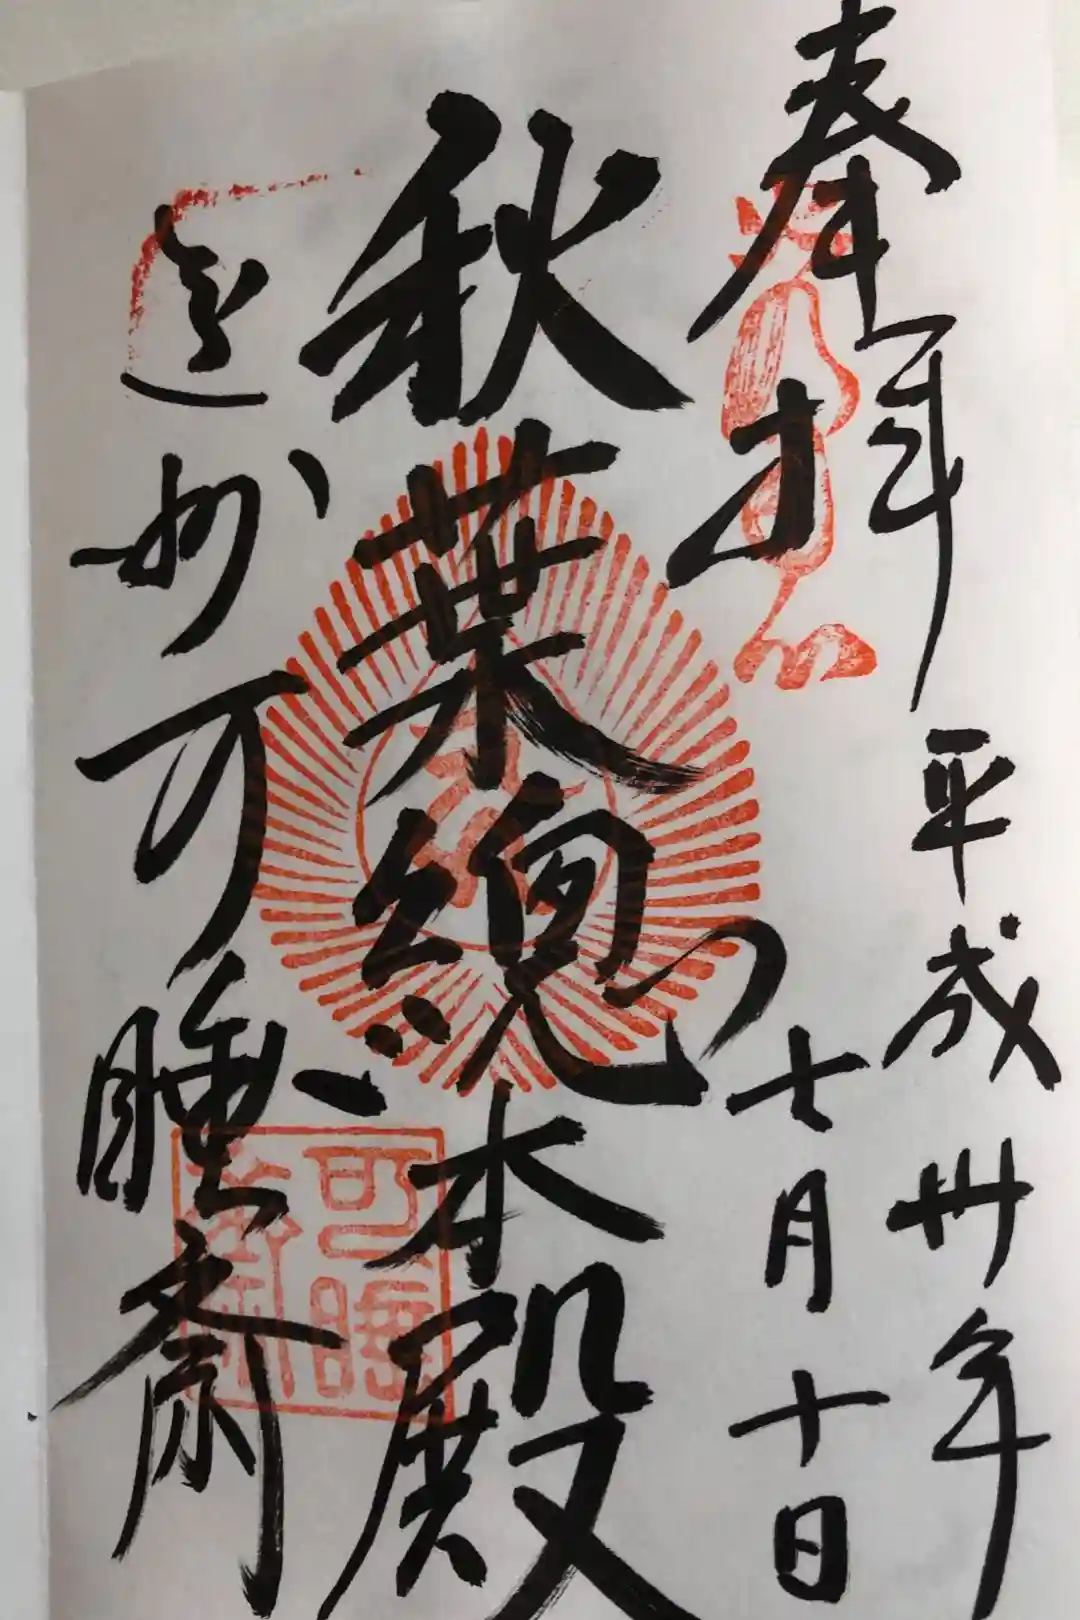 奉拝
平成卅年
七月十日
秋葉總本殿
遠州可睡斎
可睡